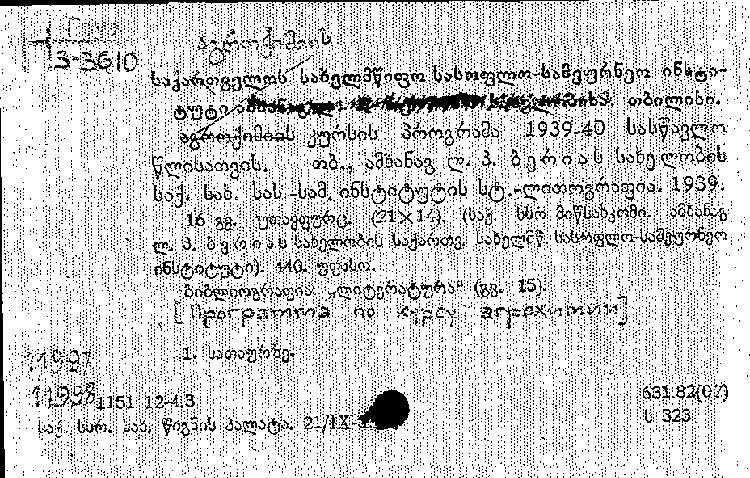 3-3610
აგროქიმიის
საქართველოს სახელმწიფო სასოფლო-სამეურნეო ინსტი-
ტუტი თბილისი.
აგროქიმიის კურსის პროგრამა 1939-40 სასწავლო
წლისათვის. თბ., ამხანაგ ლ. პ. ბერიას სახელობის
საქ. სახ. სას.-სამ. ინსტიტუტის სტ.-ლითოგრაფია. 1939.
16 გვ. უთავფურც. (21×14). (საქ. სსრ მიწსახკომი. ამხანაგ
ლ. პ. ბერიას სახელობის საქართვ. სახელმწ. სასოფლო-სამეურნეო
ინსტიტუტი). 110. უფასო.
ბიბლიოგრაფია „ლიტერატურა“ (გვ. 15).
[Программа по курсу агрохимии]
1. სათაურზე.
11997
11998 1151 12-4.3 631.82(07)
საქ. სსრ. სახ. წიგნის პალატა. 21/IX- ს 323